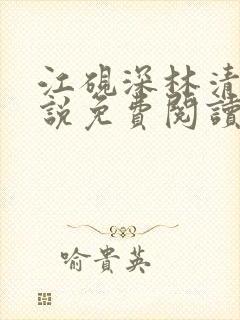 江硯深林清
說免費閱讀
喻貴英